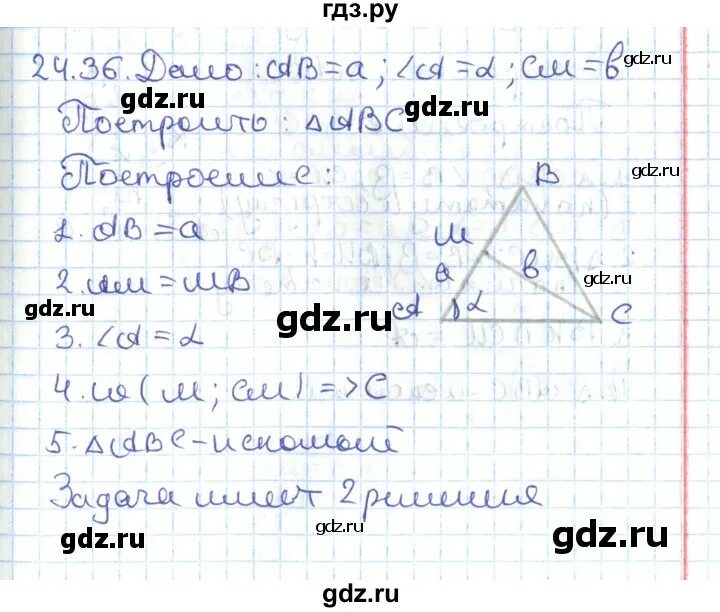 гдз.ру
24.36. Дано: AB = a; ∠A = α; CM = b
gdz.ru
gdz.ru
Построить: △ABC
gdz.ru
gdz.ru
Построение:
B
1. AB = a
M
2. AM = MB
a
b
gdz.ru
gdz.ru
A
α
C
gdz.ru
3. ∠A = α
4. ω(M; CM) => C
gdz.ru
gdz.ru
5. △ABC - искомый
Задача имеет 2 решения
gdz.ru
gdz.ru
gdz.ru
gdz.ru